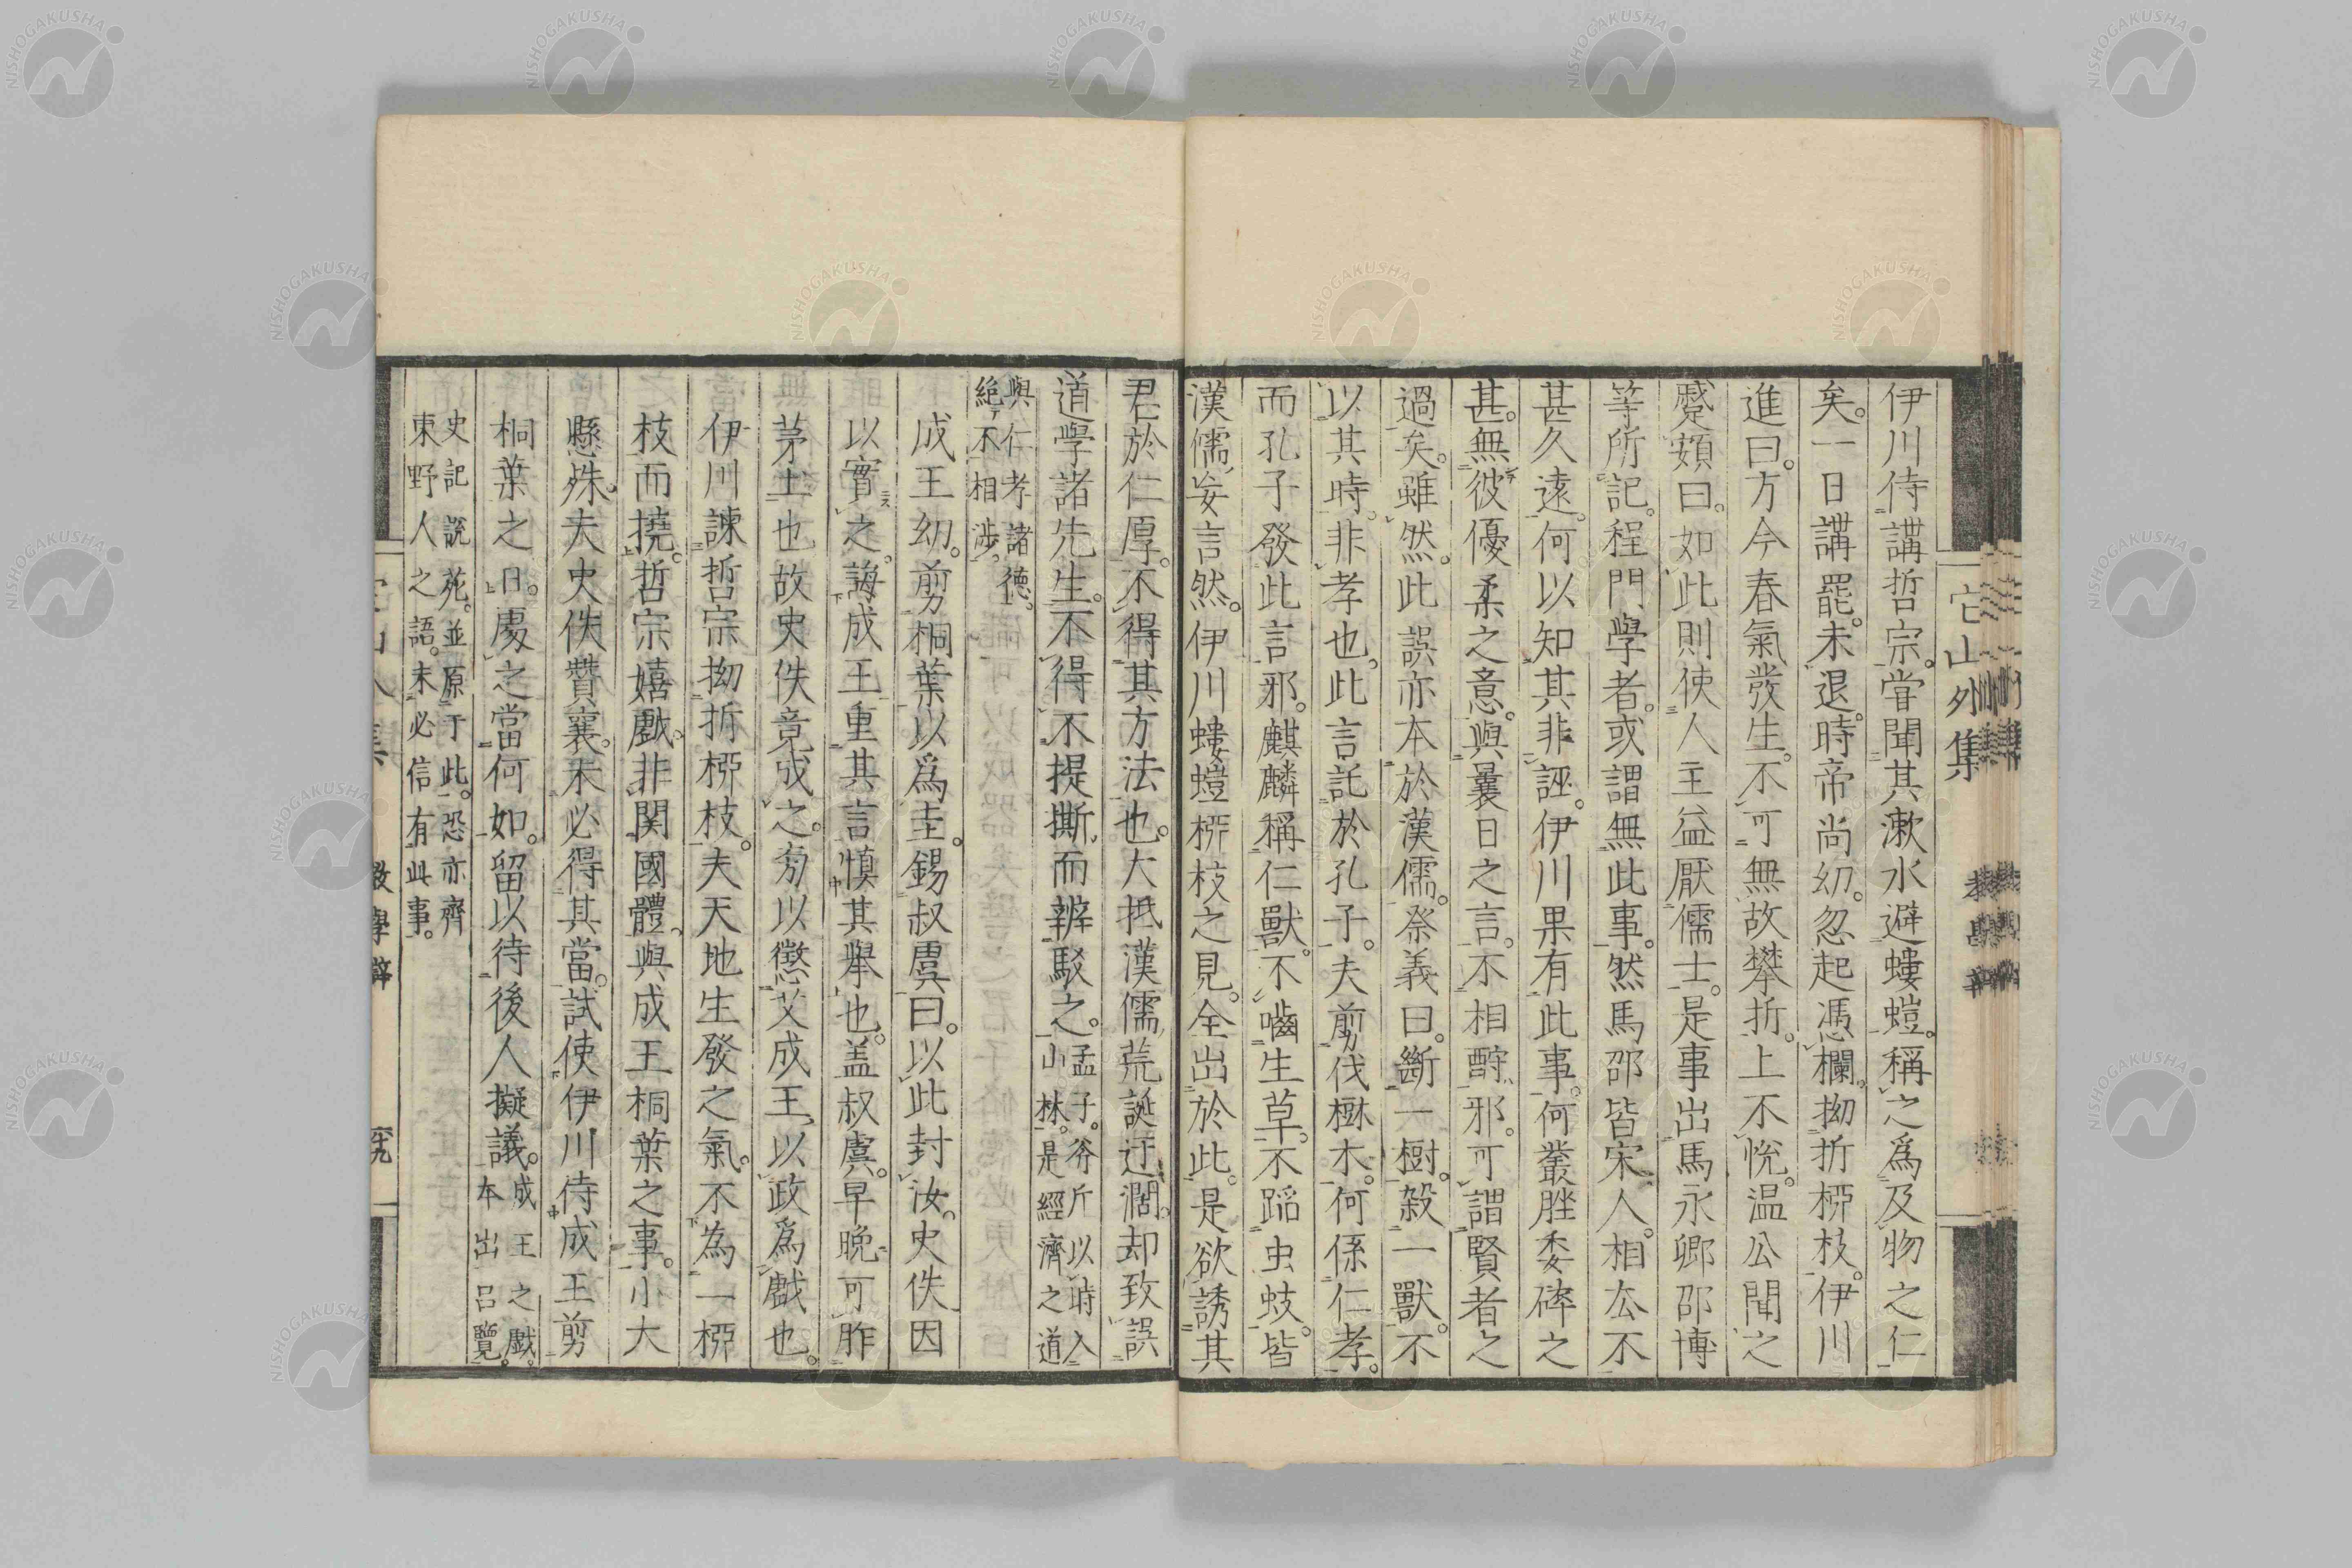 伊川侍講哲宗。甞聞其漱水避螻螘。稱之爲及物之仁
矣。一日講罷。未退。時帝尚幼。忽起憑欄。拗折桺枝。伊川
進曰。方今春氣發生。不可無故攀折。上不悅。温公聞之
蹙頞曰。如此則使人主益厭儒士。是事出馬永卿邵博
等所記。程門學者。或謂無此事。然馬邵皆宋人。相厺不
甚久遠。何以知其非誣。伊川果有此事。何叢脞委碎之
甚。無彼優柔之意。與曩日之言。不相酧邪。可謂賢者之
過矣。雖然。此誤亦本於漢儒。祭義曰。斷一樹。殺一獸。不
以其時。非孝也。此言託於孔子。夫剪伐樹木。何係仁孝。
而孔子發此言邪。麒麟稱仁獸。不囓生草。不蹈虫蚑。皆
漢儒妄言然。伊川螻螘桺枝之見。全出於此。是欲誘其
君於仁厚。不得其方法也。大抵漢儒荒誕迂濶。却致誤
道學諸先生。不得不提撕而辨駁之。孟子。斧斤以時入
山林。是經濟之道
與仁孝諸德。
絕不相涉。
成王幼。剪桐葉以爲圭。錫叔虞曰。以此封汝。史佚因
以實之。誨成王重其言慎其舉也。盖叔虞。早晚可胙
茅土也故史佚竟成之。旁以懲艾成王、以政爲戯也。
伊川諫哲宗拗折桺枝。夫天地生發之氣。不為一桺
枝而撓。哲宗嬉戯。非関國體。與成王桐葉之事。小大
懸殊。夫史佚贊襄。未必得其當。試使伊川侍成王剪
桐葉之日。處之當何如。留以待後人擬議。成王之戯。
本出呂覽。
史記說苑。並原于此。恐亦齊
東野人之語。未必信有此事。
它山外集
NISHOGAKUSHA